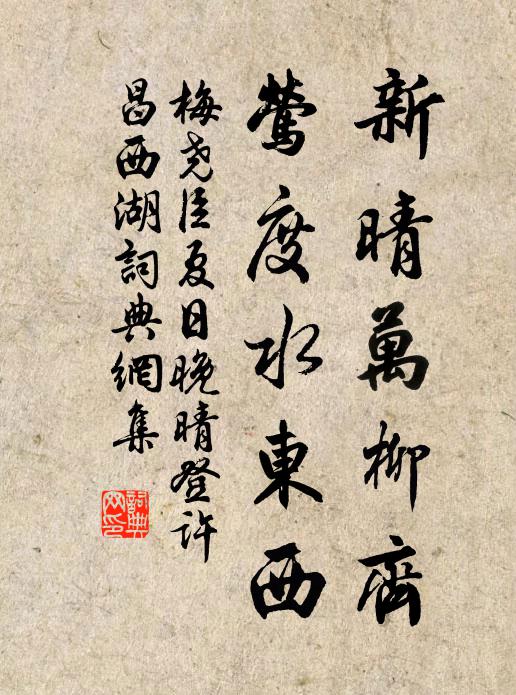 新晴萬柳齊
鶯度水東西
梅尧臣夏日晚晴登許
昌西湖詞典網集
詞典网印